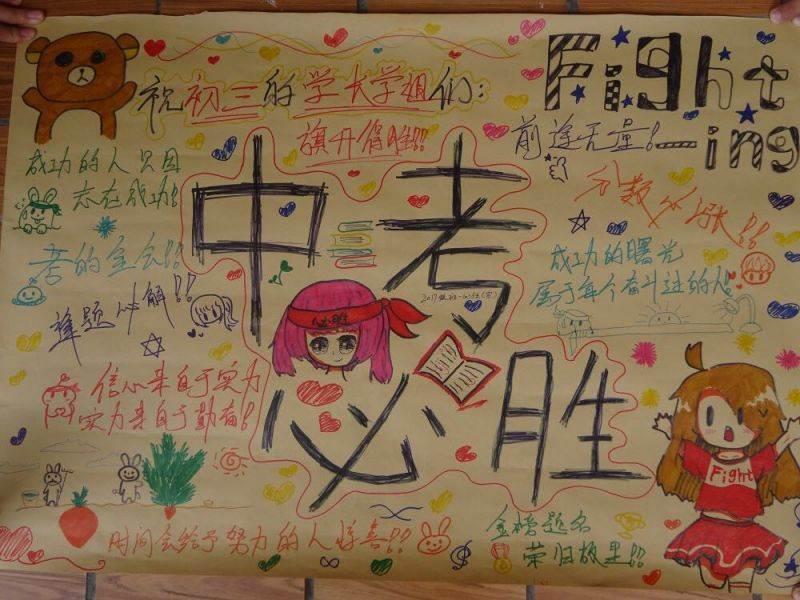 祝初三的学长学姐们:
Fight
—ing
旗开得胜!!
前途无量!
成功的人只因
志在成功!
分数飞涨!!
考的全会!!
中考
成功的曙光
属于每个奋斗过的人!
逢题必解!!
必胜
必胜
信心来自于实力
实力来自于勤奋!
Fight
时间会给予努力的人惊喜!!
金榜题名
荣归故里!!